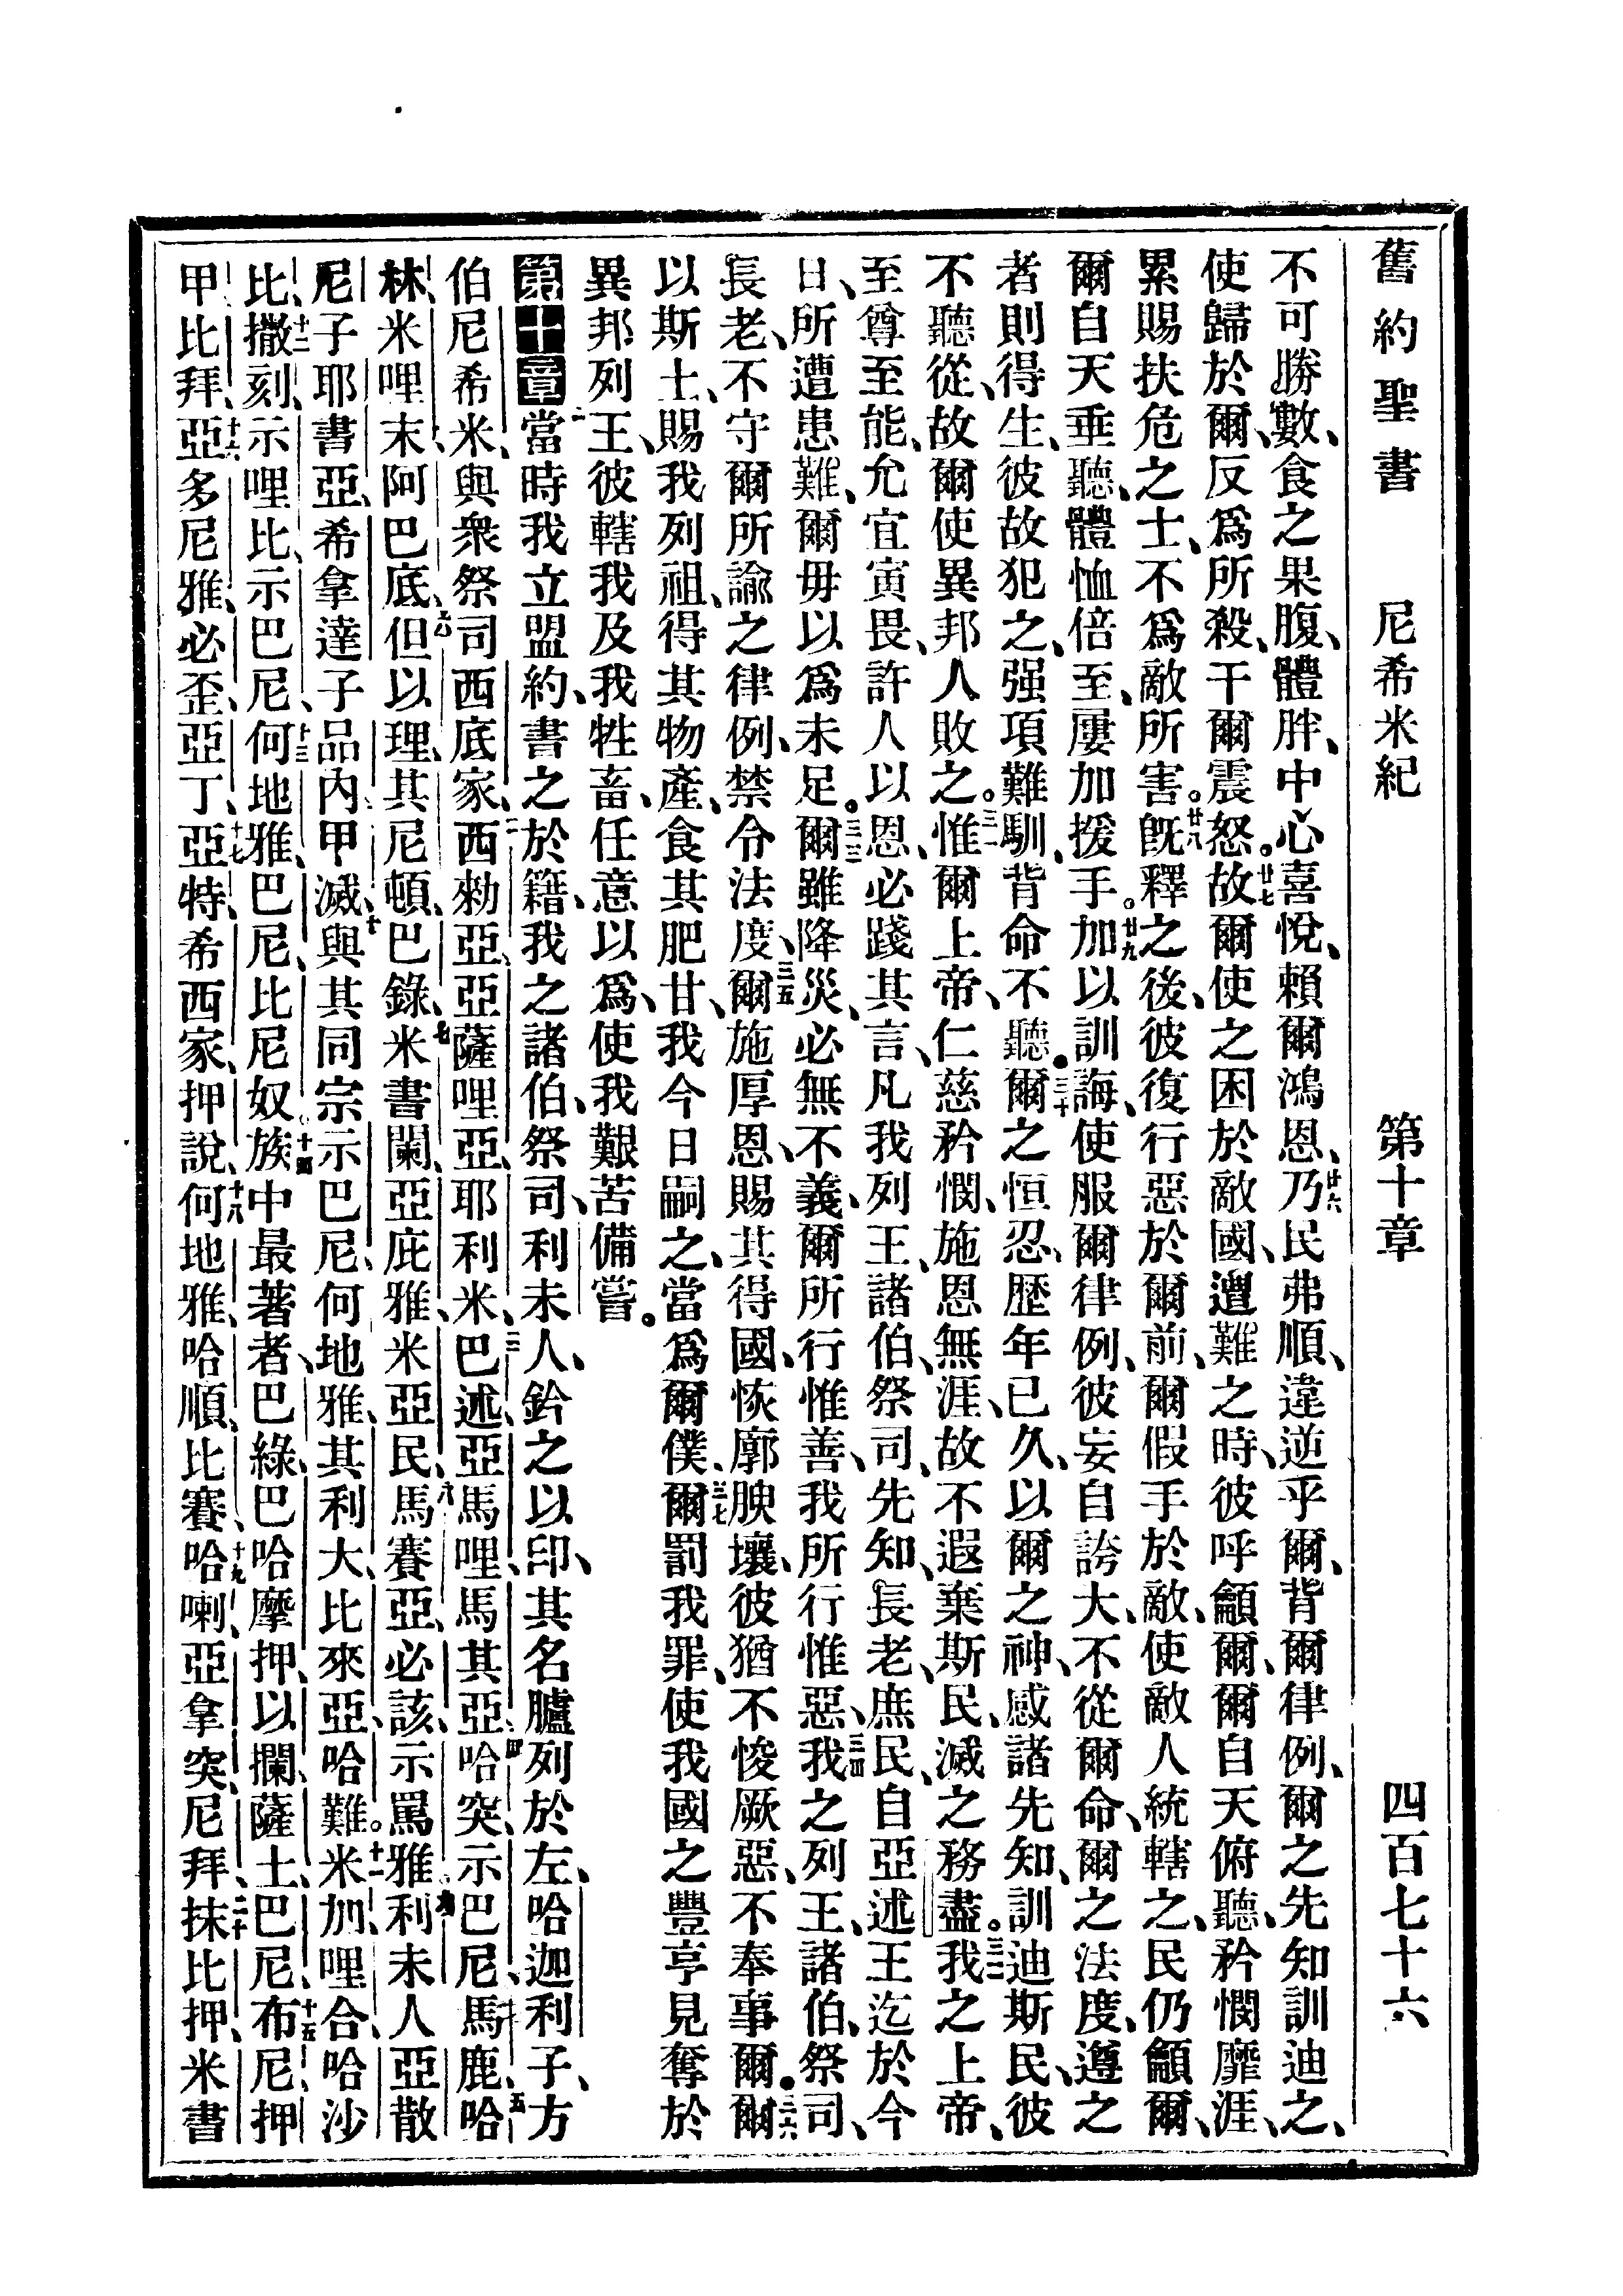 舊約聖書 尼希米紀 第十章 四百七十六
不可勝數、食之果腹、體胖、中心喜悅、賴爾鴻恩、廿六乃民弗順、違逆乎爾、背爾律例、爾之先知訓迪之、
使歸於爾、反爲所殺、干爾震怒。廿七故爾使之困於敵國、遭難之時、彼呼龥爾、爾自天俯聽、矜憫靡涯、
累賜扶危之士、不爲敵所害。廿八旣釋之後、彼復行惡於爾前、爾假手於敵、使敵人統轄之、民仍龥爾、
爾自天垂聽、體恤倍至、屢加援手。廿九加以訓誨、使服爾律例、彼妄自誇大、不從爾命、爾之法度、遵之
者則得生、彼故犯之、强項難馴、背命不聽。三十爾之恒忍、歷年已久、以爾之神、感諸先知、訓迪斯民、彼
不聽從、故爾使異邦人敗之。三一惟爾上帝、仁慈矜憫、施恩無涯、故不遐棄斯民、滅之務盡。三二我之上帝、
至尊至能、允宜寅畏、許人以恩、必踐其言、凡我列王、諸伯、祭司、先知、長老、庶民、自亞述王迄於今
日、所遭患難、爾毋以爲未足。三三爾雖降災、必無不義、爾所行惟善、我所行惟惡、三四我之列王、諸伯、祭司、
長老、不守爾所諭之律例、禁令法度、三五爾施厚恩、賜其得國、恢廓腴壤、彼猶不悛厥惡、不奉事爾。三六爾
以斯土、賜我列祖、得其物產、食其肥甘、我今日嗣之、當爲爾僕、三七爾罰我罪、使我國之豐亨見奪於
異邦列王、彼轄我及我牲畜、任意以爲、使我艱苦備嘗。
第十章一當時我立盟約、書之於籍、我之諸伯、祭司、利未人、鈐之以印、其名臚列於左、哈迦利子、方
伯尼希米、與衆祭司西底家、二西勑亞、亞薩哩亞、耶利米、三巴述、亞馬哩、馬其亞、四哈突、示巴尼、馬鹿、五哈
林、米哩末、阿巴底、六但以理、其尼頓、巴錄、七米書闌、亞庇雅、米亞民、八馬賽亞、必該、示罵雅、九利未人亞散
尼子耶書亞、希拿達子品內、甲滅、十與其同宗示巴尼、何地雅、其利大、比來亞、哈難。十一米加、哩合、哈沙
比、十二撒刻、示哩比、示巴尼、十三何地雅、巴尼、比尼奴、十四族中最著者、巴綠、巴哈摩押、以攔、薩土、巴尼、十五布尼、押
甲、比拜、十六亞多尼雅、必歪、亞丁、十七亞特、希西家、押說、十八何地雅、哈順、比賽、十九哈喇、亞拿突、尼拜、二十抹比押、米書